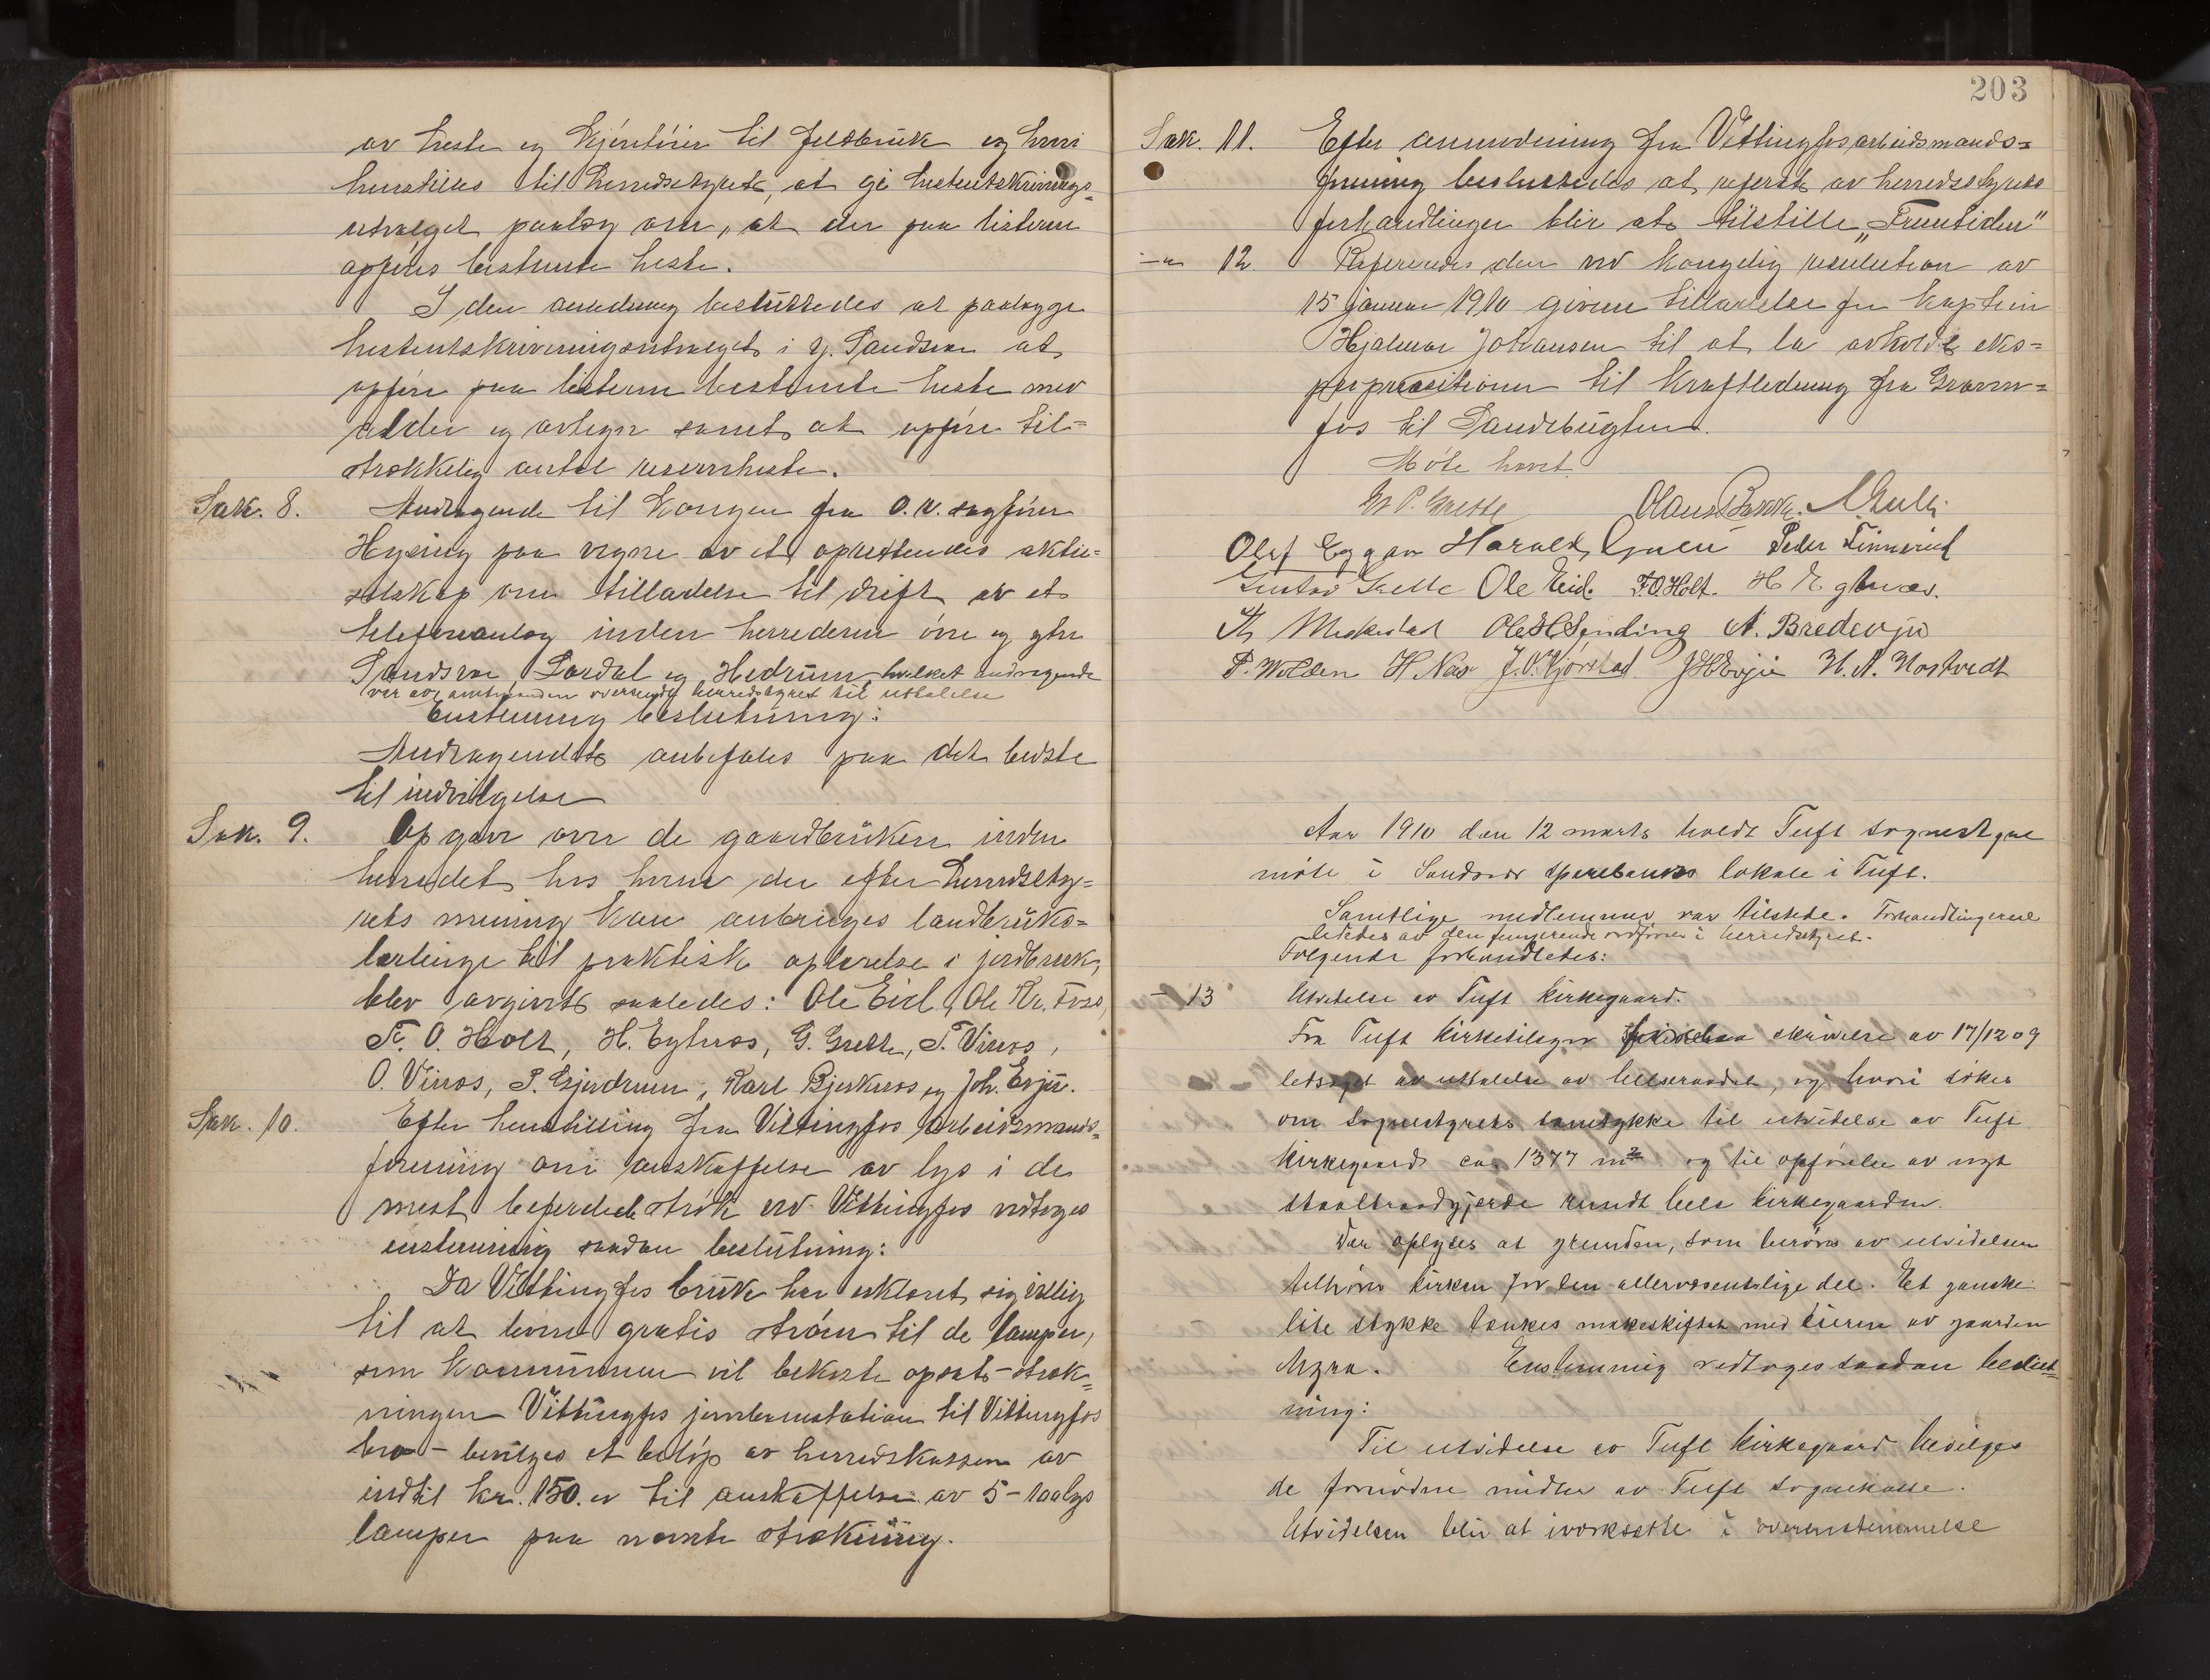 av heste og kjøretøier til feltbruk og hvori
henstilles til herredsstyret, at gi hesteutskrivnings-
utvalget paalæg om, at der paa listerne
opføres bestemte heste.
I den anledning besluttedes at paalægge
hesteutskrivningsutvalget i y. Sandsvær at
opføre paa listerne bestemte heste med
alder og avtegn samt at opføre til=
strækkelig antal reserveheste.
Sak. 8. Andragende til Kongen fra o.r. sagfører
Hysing paa vegne av et oprettendes aktie=
selskap om tilladelse til drift av et
telefonanlæg inden herrederne øvre og ytre
Sandsvær, Lardal og Hedrum hvilket andragende
var av amtmanden oversendt herredsstyret til uttalelse
Enstemmig beslutning:
Andragendet anbefales paa det bedste
til indvilgelse
Sak. 9. Opgave over de gaardbrukere inden
herredet hos hvem der efter herredssty=
rets mening kan anbringes landbruks=
lærlinge til praktisk oplærelse i jordbruk,
blev avgivet saaledes: Ole Eid, Ole Kr. Foss,
Fr. O. Holt, H. Eglnæs, G. Grette, T. Vinæs,
O. Vinæs, P. Gjerdrum, Karl Bjerknes og Joh. Evju.
Sak. 10. Efter henstilling fra Vittingfos Arbeidsmands=
forening om anskaffelse av lys i de
mest befærdede strøk ved Vittingfos vedtoges
enstemmig saadan beslutning:
Da Vittingfos bruk har erklæret sig villig
til at levere gratis strøm til de lamper,
som kommunen vil bekoste opsat - stræk=
ningen Vittingfos jernbanestation til Vittingfos
bro - bevilges et beløp av herredskassen av
indtil kr. 150. er til anskaffelse av 5 - 100 lys
lamper paa nævnte strækning.
203
Sak. 11. Efter anmodning fra Vittingfos arbeidsmands=
forening besluttedes at referat av herredsstyrets
forhandlinger blir at tilstille „Fremtiden"
— " — 12. Refereredes den ved kongelig resolution av
15 januar 1910 givne tilladelse for kaptein
Hjalmar Johansen til at la avholde eks=
propriasition til kraftledning fra Gravn=
fos til Sandebugten.
Møte hævet
G. P. Grette Olaus Bakke.
Olaf Eggar Harald Peder Tinnerud
Gustav Grette Ole Eid. F.O. Holt. H E glnæs.
Th Meskestad Ole H Sending A. Bredevju
P. Wollen H. Næs J.O. Hjørstad JHEvju H. A. Nostvedt
Aar 1910 den 12 marts holdt Tuft sognestyre
møte i Sandsvær sparebanks lokale i Tuft.
Samtlige medlemmer var tilstede. Forhandlingerne
lededes av den fungerende ordfører i herredsstyret.
Følgende forhandledes:
— 13 Utvidelse av Tuft kirkegaard.
Fra Tuft kirketilsyn skrivelse av 17/12 09
ledsaget av uttalelse av helseraadet, og hvori søkes
om sognestyrets samtykke til utvidelse av Tuft
kirkegaard ca. 1377 m² og til opførelse av nyt
staaltraadgjærde rundt hele kirkegaarden.
Der oplyses at grunden, som berøres av utvidelsen
tilhører kirken for den allervæsentlige del. Et ganske
lite stykke tænkes makeskiftet med eieren av gaarden
Myra. Enstemmig vedtoges saadan beslut=
ning:
Til utvidelse av Tuft kirkegaard bevilges
de fornødne midler av Tuft sognekasse.
Utvidelsen blir at iværksætte i overenstemmelse